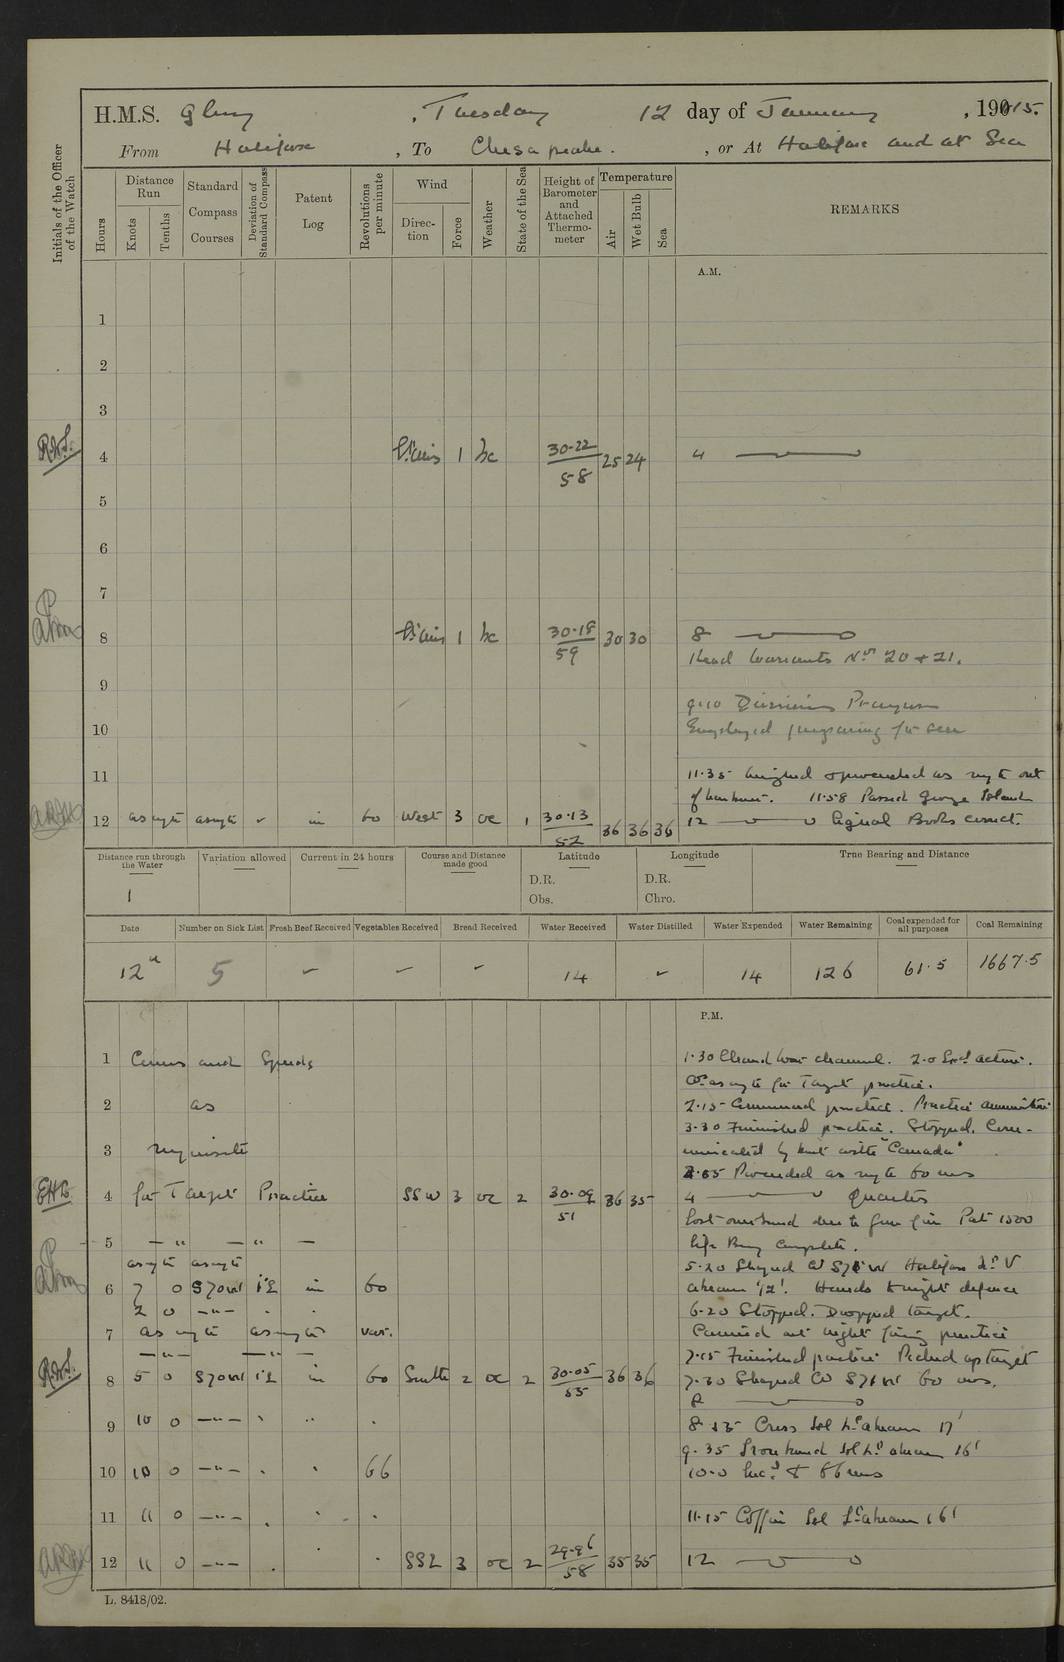 H.M.S. Glory, Tuesday 12 day of January, 1915.
From Halifax, To Chesapeake., or At Halifax and at Sea
Initials of the Officer of the Watch
Hours
Distance Run
Knots
Tenths
Standard Compass Courses
Deviation of Standard Compass
Patent Log
Revolutions per minute
Wind
Direction
Force
Weather
State of the Sea
Height of Barometer and Attached Thermometer
Temperature
Air
Wet Bulb
Sea
REMARKS
A.M.
1
2
3
4 1 bc 30.22 58 25 24 4
5
6
7
8 1 bc 30.18 59 30 30 8
Read Warrants Nos 20 + 21.
9
9.10 Divisions Prayers
10 Employed preparing for sea
11
11.35 Weighed & proceeded as reqte out
of harbour. 11.58 Passed George Island
12 as reqte as reqte in 60 West 3 oc 1 30.13 52 36 36 36 12 Signal Books correct.
Distance run through the Water
Variation allowed
Current in 24 hours
Course and Distance made good
Latitude
Longitude
True Bearing and Distance
1
D.R.
Obs.
D.R.
Chro.
Date
Number on Sick List
Fresh Beef Received
Vegetables Received
Bread Received
Water Received
Water Distilled
Water Expended
Water Remaining
Coal expended for all purposes
Coal Remaining
12th 5 14 14 126 61.5 1667.5
P.M.
1 Courses and Speeds 1.30 Cleared War channel. 2.0 action.
Co as reqte for Target practice.
2 as 2.15 Commenced practice. Practice ammunition
3.30 Finished practice. Stopped. Com-
3 requisite municated by boat with "Canada"
3.55 Proceeded as reqte 60 revs
EHB
4 for Target Practice SSW 3 oc 2 30.09 51 36 35 4 Quarters
Lost overboard due to gun fire Patt 1500
5 - " - " - Life Buoy complete.
as reqte as reqte 5.20 Shaped Co S71W Halifax Lt V
6 7 0 S70W 1°E in 60 abeam 1/2'. Hands to night defence
2 0 - " - 6.20 Stopped. Dropped target.
7 as reqte as reqte var. Carried out night firing practice
- " - - " - 7.15 Finished practice. Picked up target
8 5 0 S70W 1°E in 60 South 2 oc 2 30.05 55 36 36 7.30 Shaped Co S71W 60 revs.
8
9 10 0 - " - 8.35 Cross Isl Lt abeam 17'
9.35 Ironbound Isl Lt abeam 16'
10 10 0 - " - 66 10.0 Incd to 66 revs
11 11 0 - " - 11.15 Coffin Isl Lt abeam 16'
12 11 0 - " - SSE 3 oc 2 29.96 58 35 35 12
L. 8418/02.